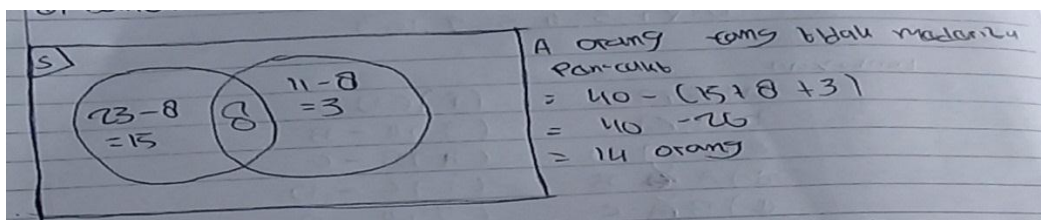 S
23-8
=15
8
11-8
=3
A orang yang tidak
= 40 - (15 + 8 + 3)
= 40 - 26
= 14 orang